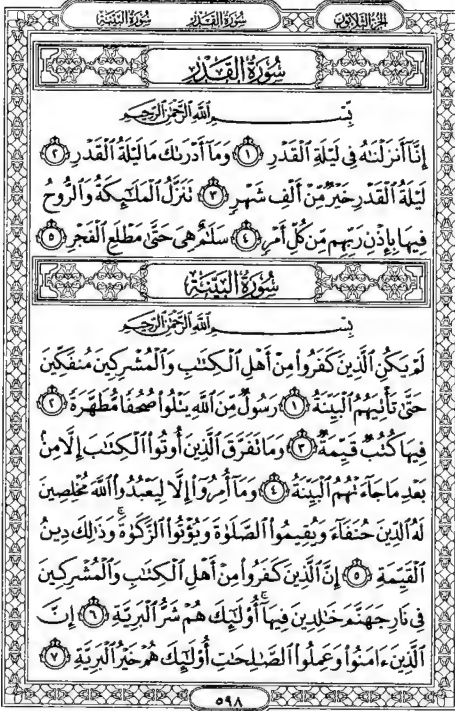 الجزء الثلاثون سورة القدر سورة البينة
سُورَةُ الْقَدْرِ
بِسْمِ اللَّهِ الرَّحْمَٰنِ الرَّحِيمِ
إِنَّا أَنزَلْنَٰهُ فِى لَيْلَةِ الْقَدْرِ ١ وَمَا أَدْرَىٰكَ مَا لَيْلَةُ الْقَدْرِ ٢
لَيْلَةُ الْقَدْرِ خَيْرٌ مِّنْ أَلْفِ شَهْرٍ ٣ تَنَزَّلُ الْمَلَٰٓئِكَةُ وَالرُّوحُ
فِيهَا بِإِذْنِ رَبِّهِم مِّن كُلِّ أَمْرٍ ٤ سَلَٰمٌ هِىَ حَتَّىٰ مَطْلَعِ الْفَجْرِ ٥
سُورَةُ الْبَيِّنَةِ
بِسْمِ اللَّهِ الرَّحْمَٰنِ الرَّحِيمِ
لَمْ يَكُنِ الَّذِينَ كَفَرُوا مِنْ أَهْلِ الْكِتَٰبِ وَالْمُشْرِكِينَ مُنفَكِّينَ
حَتَّىٰ تَأْتِيَهُمُ الْبَيِّنَةُ ١ رَسُولٌ مِّنَ اللَّهِ يَتْلُوا صُحُفًا مُّطَهَّرَةً ٢
فِيهَا كُتُبٌ قَيِّمَةٌ ٣ وَمَا تَفَرَّقَ الَّذِينَ أُوتُوا الْكِتَٰبَ إِلَّا مِنۢ
بَعْدِ مَا جَآءَتْهُمُ الْبَيِّنَةُ ٤ وَمَآ أُمِرُوٓا إِلَّا لِيَعْبُدُوا اللَّهَ مُخْلِصِينَ
لَهُ الدِّينَ حُنَفَآءَ وَيُقِيمُوا الصَّلَوٰةَ وَيُؤْتُوا الزَّكَوٰةَ ۚ وَذَٰلِكَ دِينُ
الْقَيِّمَةِ ٥ إِنَّ الَّذِينَ كَفَرُوا مِنْ أَهْلِ الْكِتَٰبِ وَالْمُشْرِكِينَ
فِى نَارِ جَهَنَّمَ خَٰلِدِينَ فِيهَآ ۚ أُولَٰٓئِكَ هُمْ شَرُّ الْبَرِيَّةِ ٦ إِنَّ
الَّذِينَ ءَامَنُوا وَعَمِلُوا الصَّٰلِحَٰتِ أُولَٰٓئِكَ هُمْ خَيْرُ الْبَرِيَّةِ ٧
٥٩٨